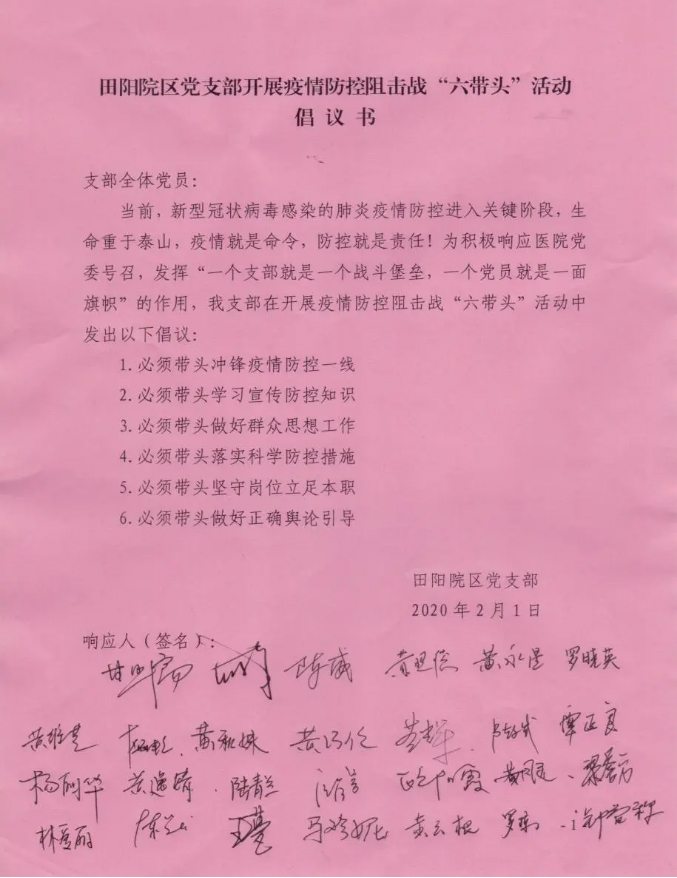 田阳院区党支部开展疫情防控阻击战“六带头”活动
倡 议 书
支部全体党员：
当前，新型冠状病毒感染的肺炎疫情防控进入关键阶段，生
命重于泰山，疫情就是命令，防控就是责任！为积极响应医院党
委号召，发挥“一个支部就是一个战斗堡垒，一个党员就是一面
旗帜”的作用，我支部在开展疫情防控阻击战“六带头”活动中
发出以下倡议：
1.必须带头冲锋疫情防控一线
2.必须带头学习宣传防控知识
3.必须带头做好群众思想工作
4.必须带头落实科学防控措施
5.必须带头坚守岗位立足本职
6.必须带头做好正确舆论引导
田阳院区党支部
2020 年 2 月 1 日
响应人（签名）：
陈威 罗晓英
覃正良
杨丽华 陆青兰
马玲妮 黄云根